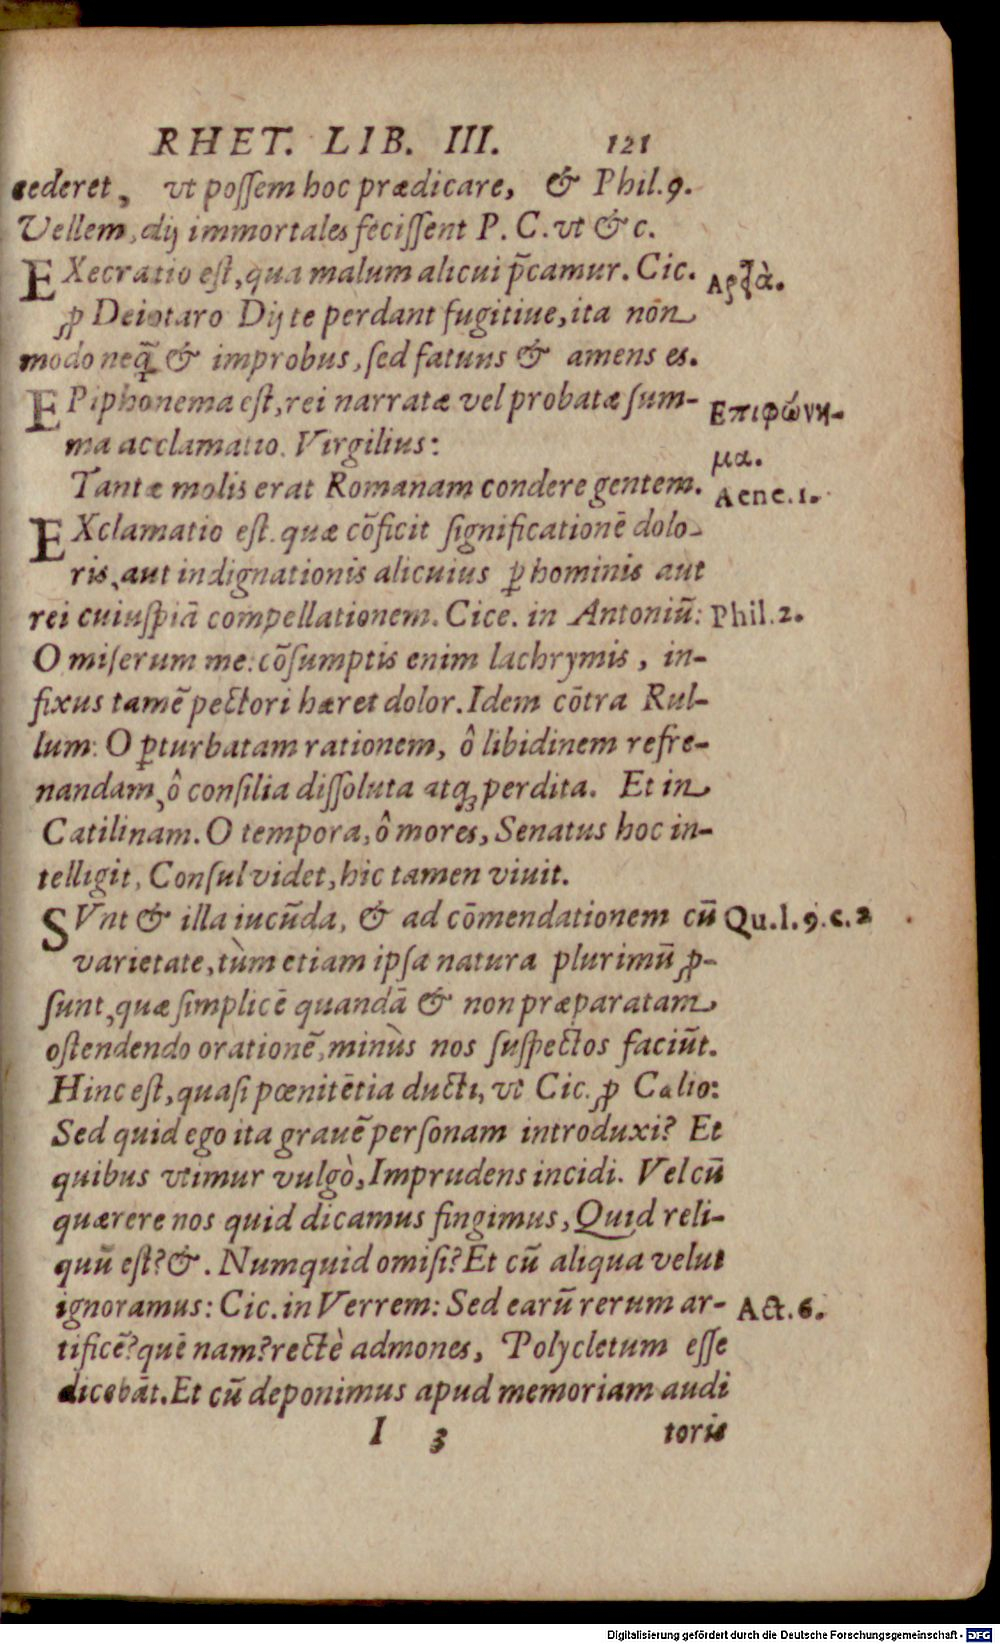 RHET. LIB. III. 121
cederet, vt possem hoc prædicare, & Phil.9.
Vellem, dij immortales fecissent P. C. vt &c.
EXecratio est, qua malum alicui p̄camur. Cic.
Ἀρὰ.
ꝓ Deiotaro Dij te perdant fugitiue, ita non
modo neq̄̃ & improbus, sed fatuus & amens es.
EPiphonema est, rei narratæ vel probatæ sum-
Επιφώνη-
ma acclamatio. Virgilius:
μα.
Tantæ molis erat Romanam condere gentem.
Aene.1.
EXclamatio est. quæ cōficit significationē dolo-
ris, aut indignationis alicuius ꝑ hominis aut
rei cuiuspiā compellationem. Cice. in Antoniū:
Phil.2.
O miserum me: cōsumptis enim lachrymis, in-
fixus tamē pectori hæret dolor. Idem cōtra Rul-
lum: O ꝑturbatam rationem, ô libidinem refre-
nandam, ô consilia dissoluta atq; perdita. Et in
Catilinam. O tempora, ô mores, Senatus hoc in-
telligit, Consul videt, hic tamen viuit.
SVnt & illa iucūda, & ad cōmendationem cū
Qu.l.9.c.2
varietate, tùm etiam ipsa natura plurimū ꝓ-
sunt, quæ simplicē quandā & non præparatam
ostendendo orationē, minùs nos suspectos faciūt.
Hinc est, quasi pœnitētia ducti, vt Cic. ꝓ Cælio:
Sed quid ego ita grauē personam introduxi? Et
quibus vtimur vulgò, Imprudens incidi. Vel cū
quærere nos quid dicamus fingimus, Quid reli-
quū est? &. Numquid omisi? Et cū aliqua velut
ignoramus: Cic. in Verrem: Sed earū rerum ar-
Act.6.
tificē? quē nam? rectè admones, Polycletum esse
dicebāt. Et cū deponimus apud memoriam audi
I 3 toris
Digitalisierung gefördert durch die Deutsche Forschungsgemeinschaft - DFG